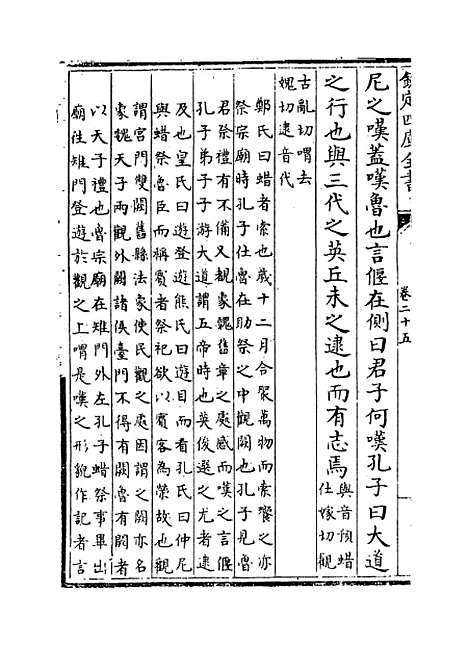 欽定四庫全書
卷二十五
尼之嘆蓋嘆魯也言偃在側曰君子何嘆孔子曰大道
之行也與三代之英丘未之逮也而有志焉與音預蜡仕嫁切觀
古亂切喟去媿切逮音代
鄭氏曰蜡者索也歲十二月合聚萬物而索饗之亦
祭宗廟時孔子仕魯在助祭之中觀闕也孔子見魯
君祭禮有不備又覩象魏舊章之處感而嘆之言偃
孔子弟子子游大道謂五帝時也英俊選之尤者逮
及也皇氏曰遊登遊熊氏曰遊目而看孔氏曰仲尼
與蜡祭魯臣而稱賓者祭祀欲以賓客為榮故也觀
謂宫門雙闕舊縣法象使民觀之處因謂之闕亦名
象魏天子兩觀外闕諸侯臺門不得有闕魯有闕者
以天子禮也魯宗廟在雉門外左孔子蜡祭事畢出
廟往雉門登遊於觀之上喟是嘆之形貌作記者言